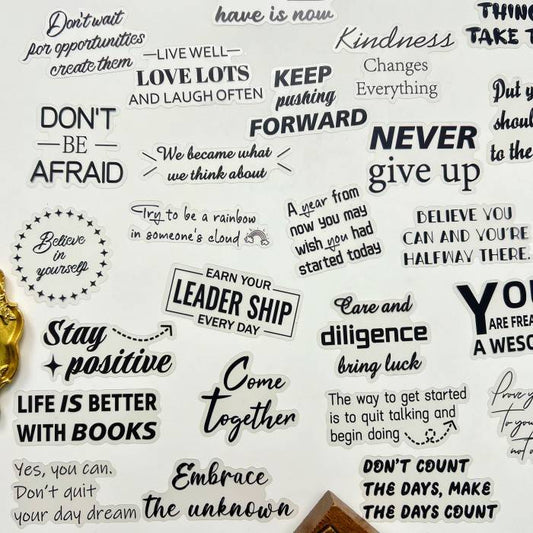 have is now
THING
TAKE T
Don't wait
for opportunities
create them
—LIVE WELL—
LOVE LOTS
AND LAUGH OFTEN
Kindness
Changes
Everything
KEEP
pushing
FORWARD
Put y
shoul
to the
DON'T
BE
AFRAID
We became what
we think about
NEVER
give up
Try to be a rainbow
in someone's cloud
A year from
now you may
wish you had
started today
BELIEVE YOU
CAN AND YOU'RE
HALFWAY THERE..
Believe
in
yourself
EARN YOUR
LEADER SHIP
EVERY DAY
Care and
diligence
bring luck
YOU
ARE FREA
A WESO
Stay
positive
Come
together
LIFE IS BETTER
WITH BOOKS
The way to get started
is to quit talking and
begin doing
Prove y
To you
not o
Yes, you can.
Don't quit
your day dream
Embrace
the unknown
DON'T COUNT
THE DAYS, MAKE
THE DAYS COUNT